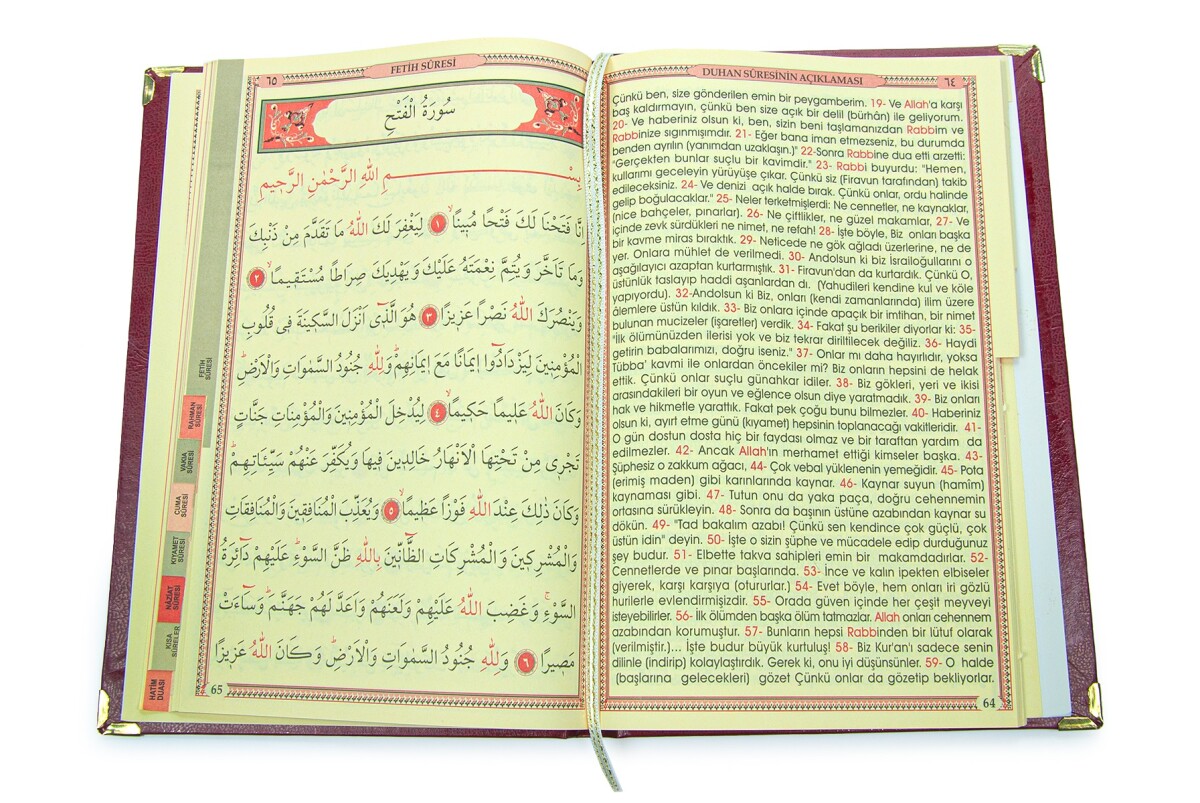 DUHAN SÛRESİNİN AÇIKLAMASI
٦٤
Çünkü ben, size gönderilen emin bir peygamberim. 19- Ve Allah'a karşı
baş kaldırmayın, çünkü ben size açık bir delil (bürhân) ile geliyorum.
20- Ve haberiniz olsun ki, ben, sizin beni taşlamanızdan Rabbim ve
Rabbinize sıgınmışımdır. 21- Eğer bana iman etmezseniz, bu durumda
benden ayrılın (yanımdan uzaklaşın.)" 22-Sonra Rabbine dua etti arzetti:
"Gerçekten bunlar suçlu bir kavimdir." 23- Rabbi buyurdu: "Hemen,
kullarımı geceleyin yürüyüşe çıkar. Çünkü siz (Firavun tarafından) takib
edileceksiniz. 24- Ve denizi açık halde bırak. Çünkü onlar, ordu halinde
gelip boğulacaklar." 25- Neler terketmişlerdi: Ne cennetler, ne kaynaklar,
(nice bahçeler, pınarlar). 26- Ne çiftlikler, ne güzel makamlar, 27- Ve
içinde zevk sürdükleri ne nimet, ne refah! 28- İşte böyle, Biz onları başka
bir kavme miras bıraktık. 29- Neticede ne gök ağladı üzerlerine, ne de
yer. Onlara mühlet de verilmedi. 30- Andolsun ki biz İsrailoğullarını o
aşağılayıcı azaptan kurtarmıştık. 31- Firavun'dan da kurtardık. Çünkü O,
üstünlük taslayıp haddi aşanlardan dı. (Yahudileri kendine kul ve köle
yapıyordu). 32-Andolsun ki Biz, onları (kendi zamanlarında) ilim üzere
âlemlere üstün kıldık. 33- Biz onlara içinde apaçık bir imtihan, bir nimet
bulunan mucizeler (işaretler) verdik. 34- Fakat şu berikiler diyorlar ki: 35-
"İlk ölümünüzden ilerisi yok ve biz tekrar diriltilecek değiliz. 36- Haydi
getirin babalarımızı, doğru iseniz." 37- Onlar mı daha hayırlıdır, yoksa
Tübba' kavmi ile onlardan öncekiler mi? Biz onların hepsini de helak
ettik. Çünkü onlar suçlu günahkar idiler. 38- Biz gökleri, yeri ve ikisi
arasındakileri bir oyun ve eğlence olsun diye yaratmadık. 39- Biz onları
hak ve hikmetle yarattık. Fakat pek çoğu bunu bilmezler. 40- Haberiniz
olsun ki, ayırt etme günü (kıyamet) hepsinin toplanacağı vakitleridir. 41-
O gün dostun dosta hiç bir faydası olmaz ve bir taraftan yardım da
edilmezler. 42- Ancak Allah'ın merhamet ettiği kimseler başka. 43-
Şüphesiz o zakkum ağacı, 44- Çok vebal yüklenenin yemeğidir. 45- Pota
(erimiş maden) gibi karınlarında kaynar. 46- Kaynar suyun (hamîm)
kaynaması gibi. 47- Tutun onu da yaka paça, doğru cehennemin
ortasına sürükleyin. 48- Sonra da başının üstüne azabından kaynar su
dökün. 49- "Tad bakalım azabı! Çünkü sen kendince çok güçlü, çok
üstün idin" deyin. 50- İşte o sizin şüphe ve mücadele edip durduğunuz
şey budur. 51- Elbette takva sahipleri emin bir makamdadırlar. 52-
Cennetlerde ve pınar başlarında. 53- İnce ve kalın ipekten elbiseler
giyerek, karşı karşıya (otururlar.) 54- Evet böyle, hem onları iri gözlü
hurilerle evlendirmişizdir. 55- Orada güven içinde her çeşit meyveyi
isteyebilirler. 56- İlk ölümden başka ölüm tatmazlar. Allah onları cehennem
azabından korumuştur. 57- Bunların hepsi Rabbinden bir lütuf olarak
(verilmiştir.)... İşte budur büyük kurtuluş! 58- Biz Kur'an'ı sadece senin
dilinle (indirip) kolaylaştırdık. Gerek ki, onu iyi düşünsünler. 59- O halde
(başlarına gelecekleri) gözet Çünkü onlar da gözetip bekliyorlar.
64
٦٥
FETİH SÛRESİ
سُورَةُ الْفَتْحِ
بِسْمِ اللّٰهِ الرَّحْمٰنِ الرَّح۪يمِ
اِنَّا فَتَحْنَا لَكَ فَتْحًا مُب۪ينًاۙ ﴿١﴾ لِيَغْفِرَ لَكَ اللّٰهُ مَا تَقَدَّمَ مِنْ ذَنْبِكَ
وَمَا تَاَخَّرَ وَيُتِمَّ نِعْمَتَهُ عَلَيْكَ وَيَهْدِيَكَ صِرَاطًا مُسْتَق۪يمًاۙ ﴿٢﴾
وَيَنْصُرَكَ اللّٰهُ نَصْرًا عَز۪يزًا ﴿٣﴾ هُوَ الَّذ۪ٓي اَنْزَلَ السَّك۪ينَةَ ف۪ي قُلُوبِ
الْمُؤْمِن۪ينَ لِيَزْدَادُٓوا ا۪يمَانًا مَعَ ا۪يمَانِهِمْۜ وَلِلّٰهِ جُنُودُ السَّمٰوَاتِ وَالْاَرْضِۜ
وَكَانَ اللّٰهُ عَل۪يمًا حَك۪يمًاۙ ﴿٤﴾ لِيُدْخِلَ الْمُؤْمِن۪ينَ وَالْمُؤْمِنَاتِ جَنَّاتٍ
تَجْر۪ي مِنْ تَحْتِهَا الْاَنْهَارُ خَالِد۪ينَ ف۪يهَا وَيُكَفِّرَ عَنْهُمْ سَيِّـَٔاتِهِمْۜ
وَكَانَ ذٰلِكَ عِنْدَ اللّٰهِ فَوْزًا عَظ۪يمًاۙ ﴿٥﴾ وَيُعَذِّبَ الْمُنَافِق۪ينَ وَالْمُنَافِقَاتِ
وَالْمُشْرِك۪ينَ وَالْمُشْرِكَاتِ الظَّٓانّ۪ينَ بِاللّٰهِ ظَنَّ السَّوْءِۜ عَلَيْهِمْ دَٓائِرَةُ
السَّوْءِۚ وَغَضِبَ اللّٰهُ عَلَيْهِمْ وَلَعَنَهُمْ وَاَعَدَّ لَهُمْ جَهَنَّمَۜ وَسَٓاءَتْ
مَص۪يرًا ﴿٦﴾ وَلِلّٰهِ جُنُودُ السَّمٰوَاتِ وَالْاَرْضِۜ وَكَانَ اللّٰهُ عَز۪يزًا
65
FETİH
SÛRESİ
RAHMAN
SÛRESİ
VAKIA
SÛRESİ
CUMA
SÛRESİ
KIYAMET
SÛRESİ
NÂZİAT
SÛRESİ
KISA
SÛRELER
HATİM
DUASI